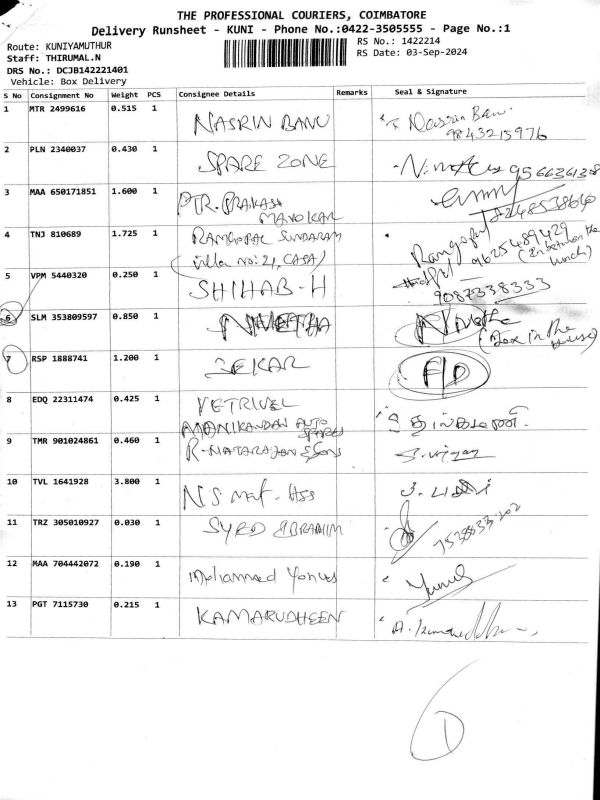 THE PROFESSIONAL COURIERS, COIMBATORE
Delivery Runsheet - KUNI - Phone No.:0422-3505555 - Page No.:1
Route: KUNIYAMUTHUR
RS No.: 1422214
Staff: THIRUMAL.N
RS Date: 03-Sep-2024
DRS No.: DCJB142221401
Vehicle: Box Delivery
S No Consignment No Weight PCS Consignee Details Remarks Seal & Signature
1 MTR 2499616 0.515 1 NASRIN BANU Nasrin Banu
9843215976
2 PLN 2340037 0.430 1 SPARE ZONE
3 MAA 650171851 1.600 1 PTR. PRAKASH
MANOKAR
4 TNJ 810689 1.725 1 RAMGOPAL SUNDARAM
(villa no: 21, CASA) 9625489429
5 VPM 5440320 0.250 1 SHIHAB-H
9087338333
6 SLM 353809597 0.850 1 NIVETHA Nivetha
(Box in the house)
7 RSP 1888741 1.200 1 SEKAR F/D
8 EDQ 22311474 0.425 1 VETRIVEL
MANIKANDAN AUTO
SPARES
9 TMR 901024861 0.460 1 R-NATARAJAN & SONS
10 TVL 1641928 3.800 1 N S Mat. Hss
11 TRZ 305010927 0.030 1 SYED IBRAHIM
7538833202
12 MAA 704442072 0.190 1 Mohammed Yonus Yunus
13 PGT 7115730 0.215 1 KAMARUDHEEN